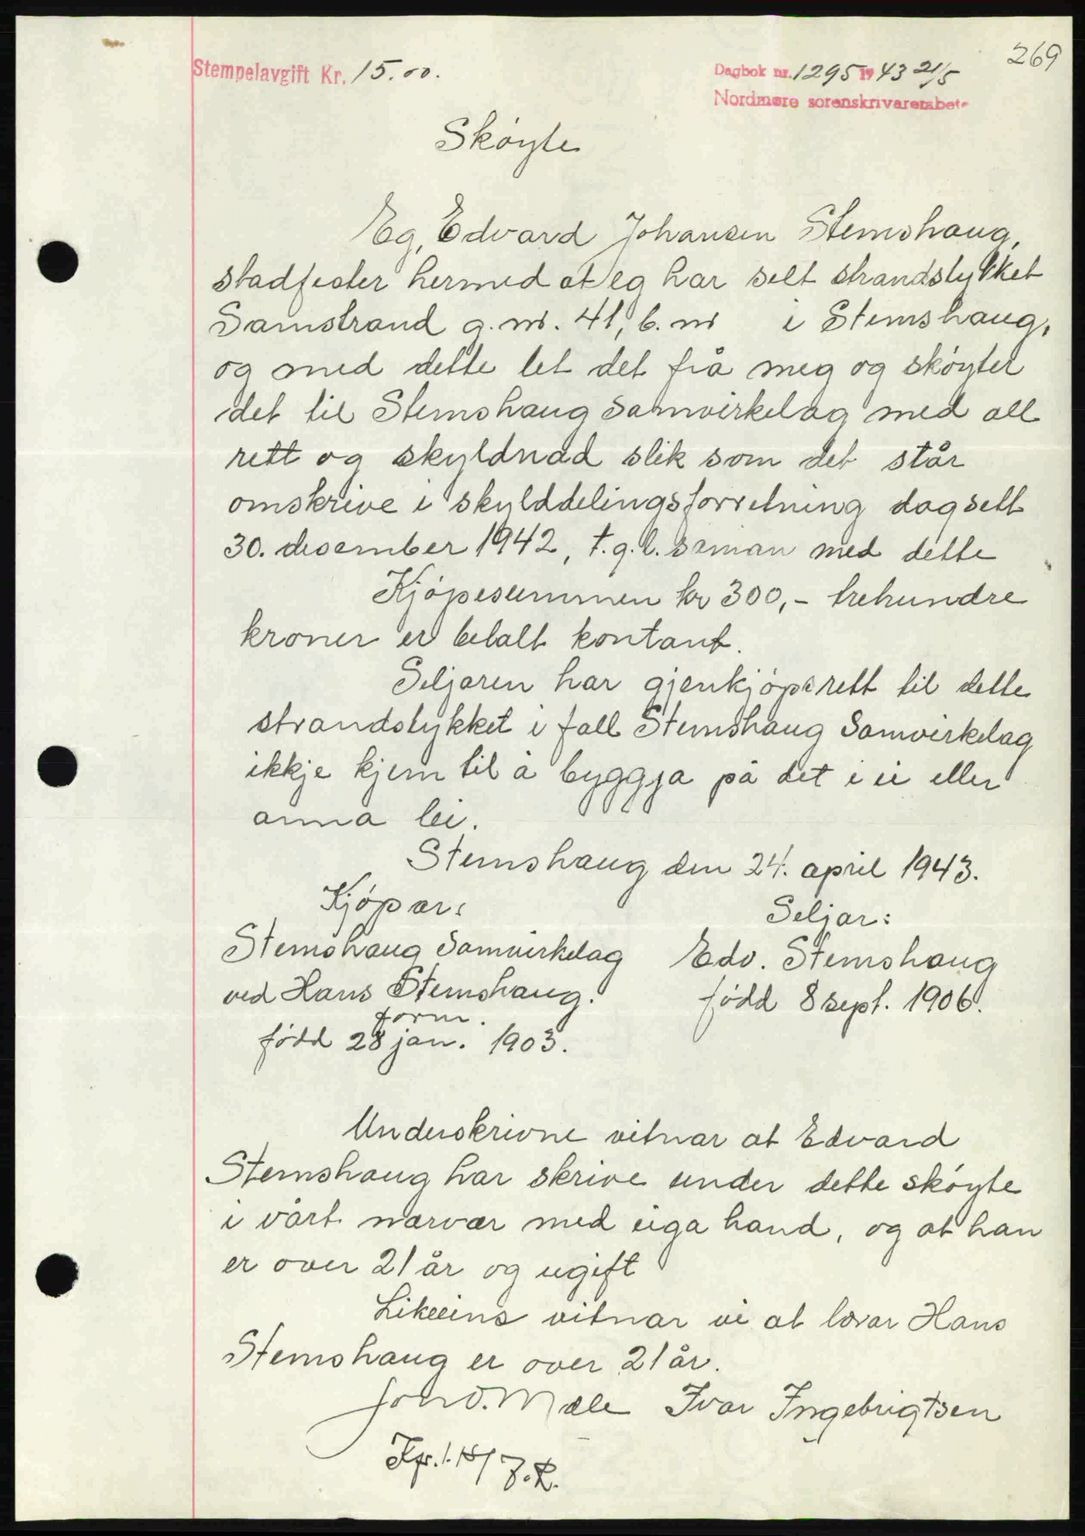 269
Stempelavgift Kr. 15.00.
Dagbok nr. 1295 1943 21/5
Nordmøre sorenskrivarembete
Skøyte
Eg, Edvard Johansen Stemshaug,
stadfester hermed at eg har selt strandstykket
Samstrand g.nr. 41, b.nr i Stemshaug,
og med dette let det frå meg og skøyter
det til Stemshaug Samvirkelag med all
rett og skyldnad slik som det står
omskrive i skylddelingsforretning dagsett
30. desember 1942, t.g.l. saman med dette
Kjøpesummen kr 300,- trehundre
kroner er betalt kontant.
Seljaren har gjenkjøpsrett til dette
strandstykket i fall Stemshaug Samvirkelag
ikkje kjem til å byggja på det i ei eller
anna lei.
Stemshaug den 24. april 1943.
Kjøpar:
Seljar:
Stemshaug Samvirkelag
Edv. Stemshaug
ved Hans Stemshaug.
født 8 sept. 1906.
form.
født 28 jan. 1903.
Underskrivne vitnar at Edvard
Stemshaug har skrive under dette skøyte
i vårt nærvær med eiga hand, og at han
er over 21 år og ugift
Likeeins vitnar vi at lærar Hans
Stemshaug er over 21 år.
John O. Mæle Ivar Ingebrigtsen